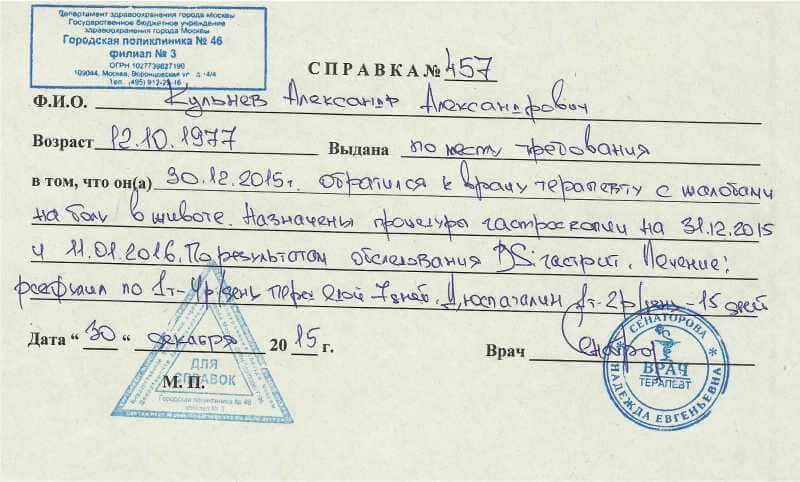 Департамент здравоохранения города Москвы
Государственное бюджетное учреждение
здравоохранения города Москвы
Городская поликлиника № 46
филиал № 3
ОГРН 1027739827190
109044, Москва, Воронцовская ул. д. 14/4
Тел. (495) 912-23-16
СПРАВКА № 457
Ф.И.О. Кульнев Александр Александрович
Возраст 12.10.1977 Выдана по месту требования
в том, что он(а) 30.12.2015г. обратился к врачу терапевту с жалобами
на боли в животе. Назначены процедуры гастроскопии на 31.12.2015
и 11.01.2016. По результатам обследования DS: гастрит. Лечение:
по 1т-4р/день перед едой 7 дней. 1т-2р/день-15 дней
Дата "30" декабря 2015 г. Врач
М. П.
ДЛЯ
СПРАВОК
Городская поликлиника № 46
филиал № 3
СЕНАТОРОВА
НАДЕЖДА ЕВГЕНЬЕВНА
ВРАЧ
ТЕРАПЕВТ